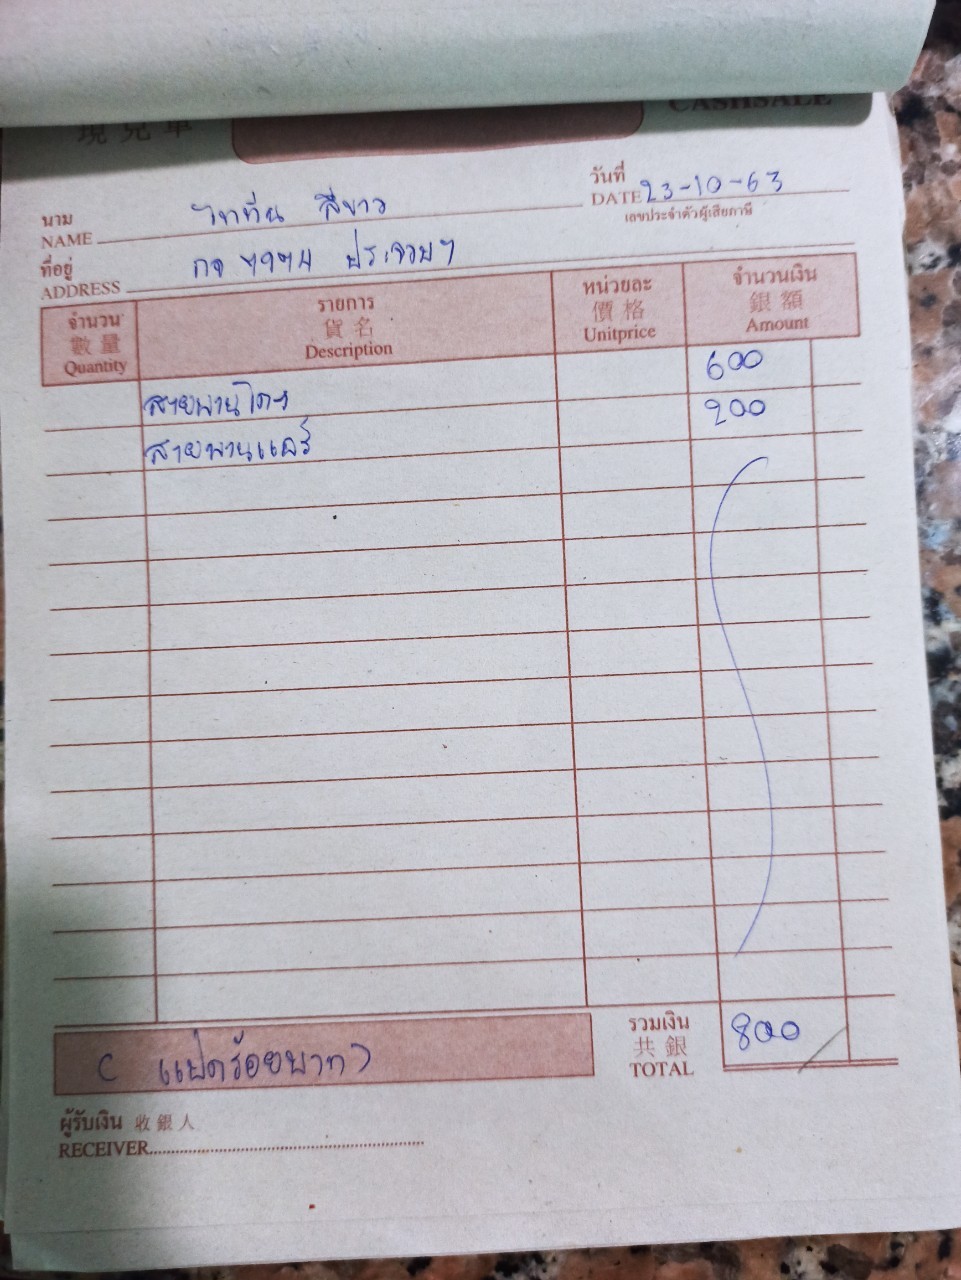 現兌單
CASHSALE
วันที่
DATE 23-10-63
นาม
NAME ไททัน สีขาว
เลขประจำตัวผู้เสียภาษี
ที่อยู่
ADDRESS กจ ฯาฯน ประจวบฯ
จำนวน รายการ หน่วยละ จำนวนเงิน
數量 貨名 價格 銀額
Quantity Description Unitprice Amount
สายพานไดฯ 600
สายพานแอร์ 200
รวมเงิน
共銀
TOTAL 800
(แปดร้อยบาท)
ผู้รับเงิน 收銀人
RECEIVER